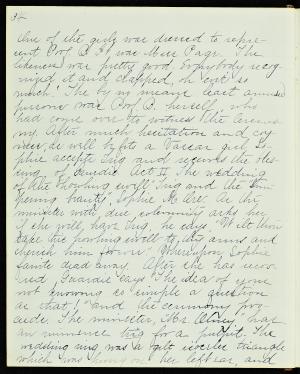 One of the girls was dressed to repre-
sent Prof. B. It was Miss Page. The
likeness was pretty good. Somebody recog-
nized it and clapped, it cost so
much. The by no means least amused
person was Prof. B. herself, who
had come over to witness the ceremo-
ny. After much hesitation and coy-
ness, as well befits a Vassar girl, So-
phie accepts Trig and receives the bles-
sing. Act II. The wedding
of the "howling swell" Trig and the "sim-
pering beauty", Sophie More. As the
minister with due solemnity asks her
if she will have Trig, he says, "Wilt thou
take this howling swell to thy arms and
cherish him forever." Whereupon Sophie
faints dead away. After she has recov-
ered Guardie says "the idea of you
not knowing so simple a question
as that", and the ceremony pro-
ceeds. The minister, Mr. has
an immense trig for a pulpit. The
wedding ring was a gilt isoceles triangle
which was hung on her left ear, and